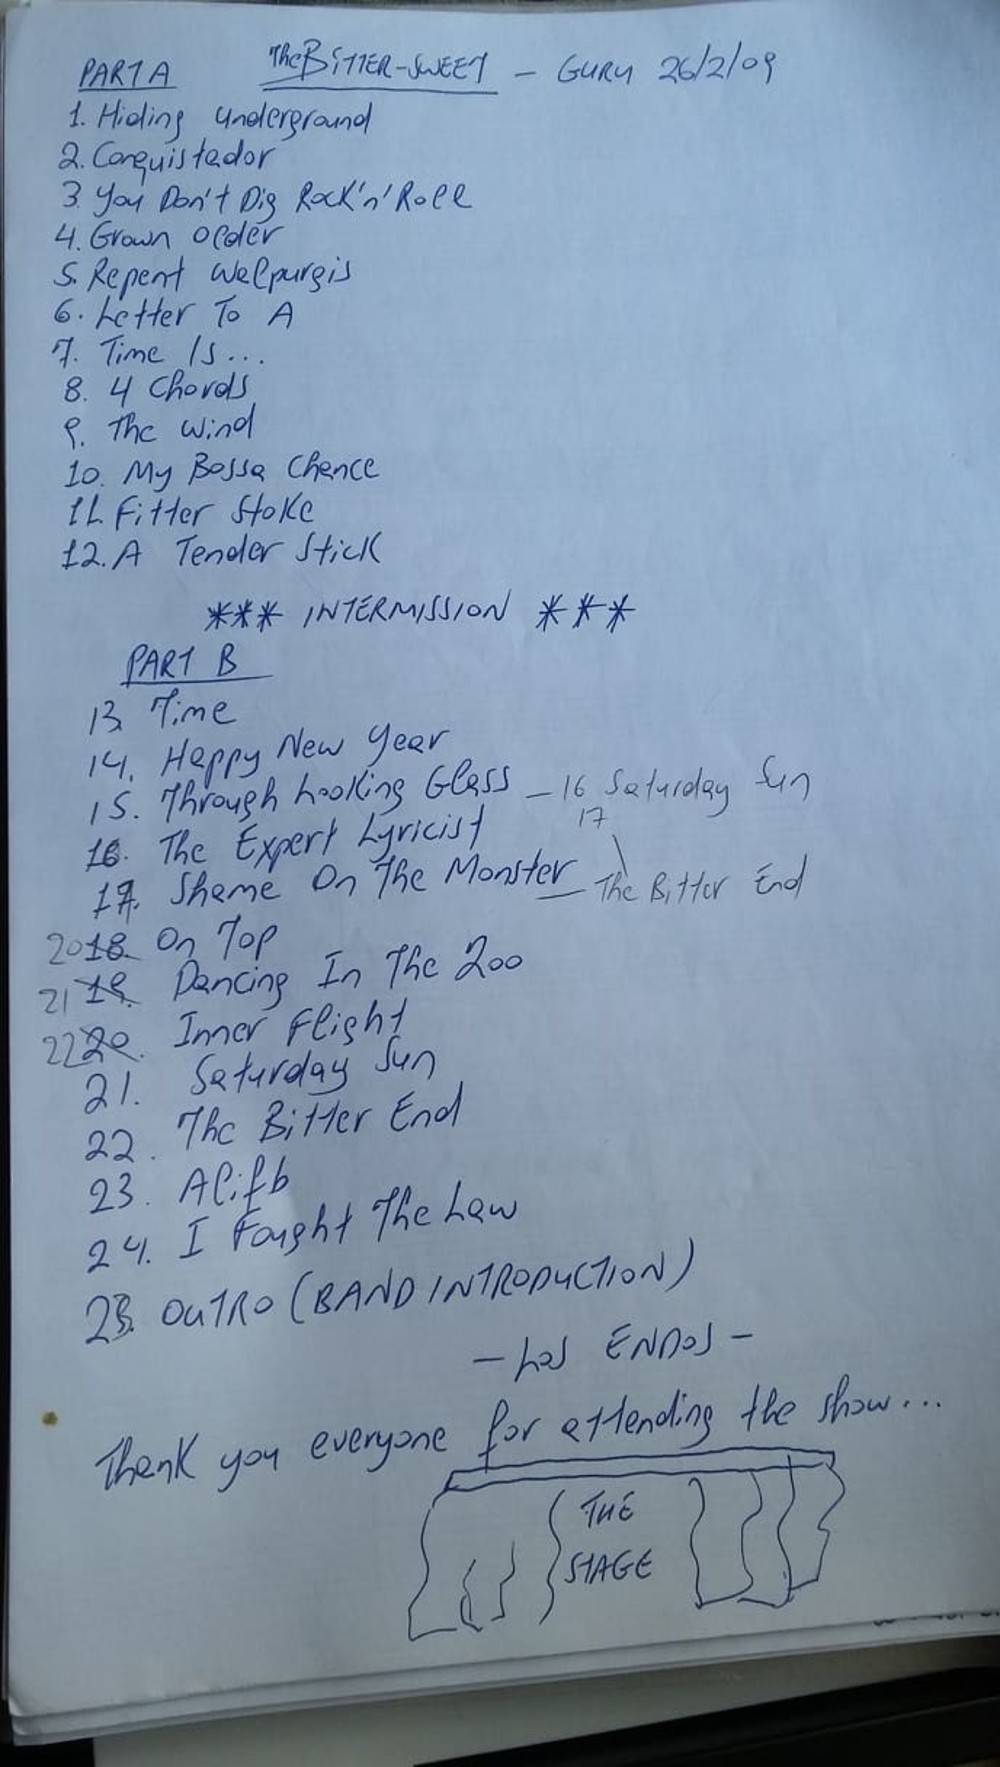 PART A The BITTER-SWEET - GURU 26/2/09
1. Hiding Underground
2. Conquistador
3. You Don't Dig Rock'n'Roll
4. Grown Older
5. Repent Walpurgis
6. Letter To A
7. Time Is...
8. 4 Chords
9. The Wind
10. My Bossa Chance
11. Fitter Stoke
12. A Tender Stick
*** INTERMISSION ***
PART B
13. Time
14. Happy New Year
15. Through Looking Glass - 16 Saturday Sun
17
16. The Expert Lyricist
17. Shame On The Monster - The Bitter End
20 18. On Top
21 19. Dancing In The Zoo
22 20. Inner Flight
21. Saturday Sun
22. The Bitter End
23. Alifb
24. I Fought The Law
25. OUTRO (BAND INTRODUCTION)
- Los ENDOS -
Thank you everyone for attending the show...
THE
STAGE